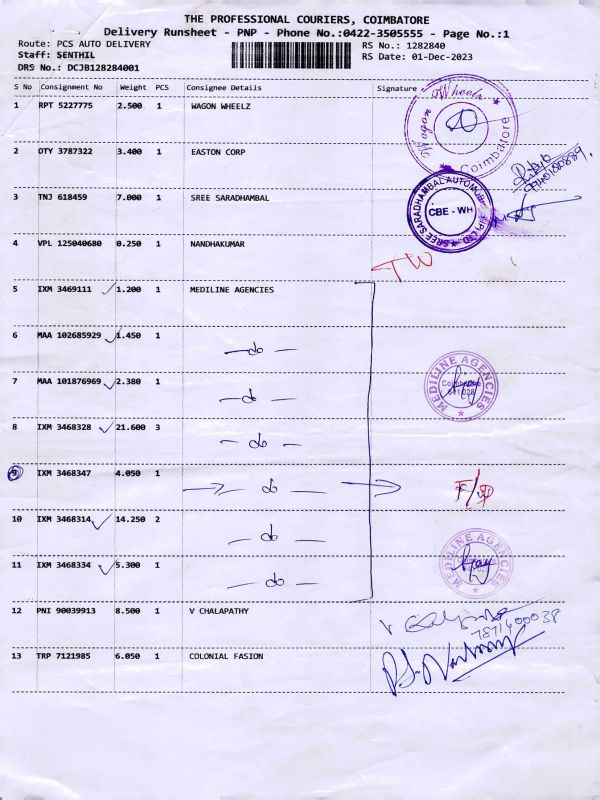 THE PROFESSIONAL COURIERS, COIMBATORE
Delivery Runsheet - PNP - Phone No.:0422-3505555 - Page No.:1
Route: PCS AUTO DELIVERY RS No.: 1282840
Staff: SENTHIL RS Date: 01-Dec-2023
DRS No.: DCJB128284001
S No Consignment No Weight PCS Consignee Details Signature
1 RPT 5227775 2.500 1 WAGON WHEELZ
Wagon Wheelz
Coimbatore
2 OTY 3787322 3.400 1 EASTON CORP
3 TNJ 618459 7.000 1 SREE SARADHAMBAL
SREE SARADHAMBAL AUTOMOBI (P) LTD
CBE - WH
4 VPL 125040680 0.250 1 NANDHAKUMAR
TW
5 IXM 3469111 1.200 1 MEDILINE AGENCIES
6 MAA 102685929 1.450 1 - do -
7 MAA 101876969 2.380 1 - do -
MEDILINE AGENCIES
8 IXM 3468328 21.600 3 - do -
9 IXM 3468347 4.050 1 - do -
10 IXM 3468314 14.250 2 - do -
11 IXM 3468334 5.300 1 - do -
MEDILINE AGENCIES
12 PNI 90039913 8.500 1 V CHALAPATHY
7871400038
13 TRP 7121985 6.050 1 COLONIAL FASION